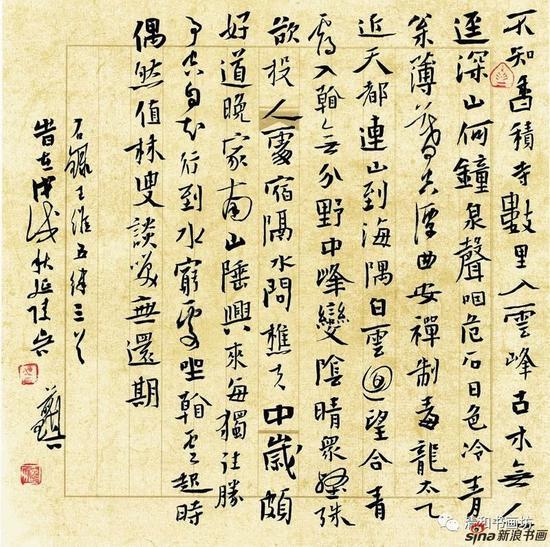 不知香積寺數里入雲峰古木無人
逕深山何鐘泉聲咽危石日色冷青
松薄暮空潭曲安禪制毒龍太乙
近天都連山到海隅白雲迴望合青
靄入看無分野中峰變陰晴眾壑殊
欲投人處宿隔水問樵夫中歲頗
好道晚家南山陲興來每獨往勝
事空自知行到水窮處坐看雲起時
偶然值林叟談笑無還期
右錄王維五律三首
時在戊戌秋延陵
清和书画坊
sina新浪书画